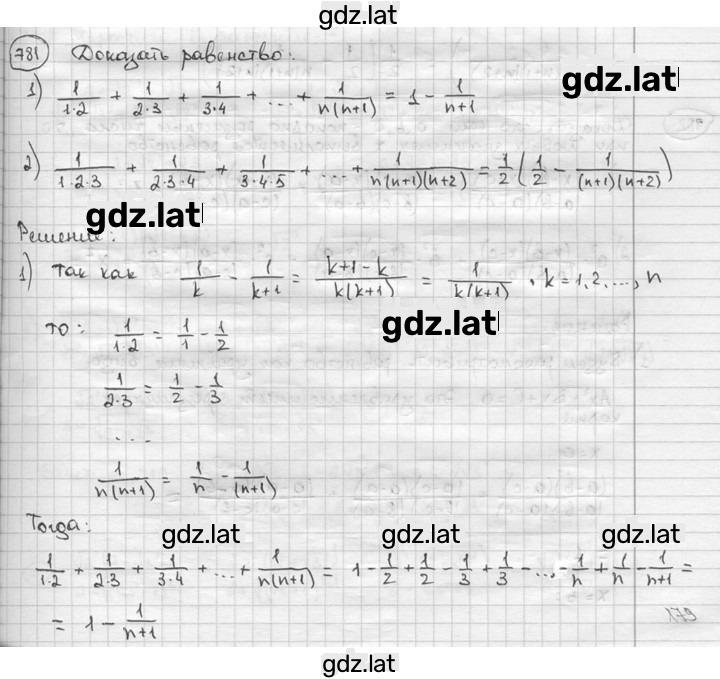 gdz.lat
781 Доказать равенство:
gdz.lat
1) 1/(1·2) + 1/(2·3) + 1/(3·4) + ... + 1/(n(n+1)) = 1 - 1/(n+1)
2) 1/(1·2·3) + 1/(2·3·4) + 1/(3·4·5) + ... + 1/(n(n+1)(n+2)) = 1/2 (1/2 - 1/((n+1)(n+2)))
gdz.lat
Решение:
1) так как 1/k - 1/(k+1) = (k+1-k)/(k(k+1)) = 1/(k(k+1)), k = 1, 2, ..., n
gdz.lat
то: 1/(1·2) = 1/1 - 1/2
1/(2·3) = 1/2 - 1/3
...
1/(n(n+1)) = 1/n - 1/(n+1)
Тогда:
gdz.lat gdz.lat gdz.lat
1/(1·2) + 1/(2·3) + 1/(3·4) + ... + 1/(n(n+1)) = 1 - 1/2 + 1/2 - 1/3 + 1/3 - ... - 1/n + 1/n - 1/(n+1) =
= 1 - 1/(n+1)
179
gdz.lat